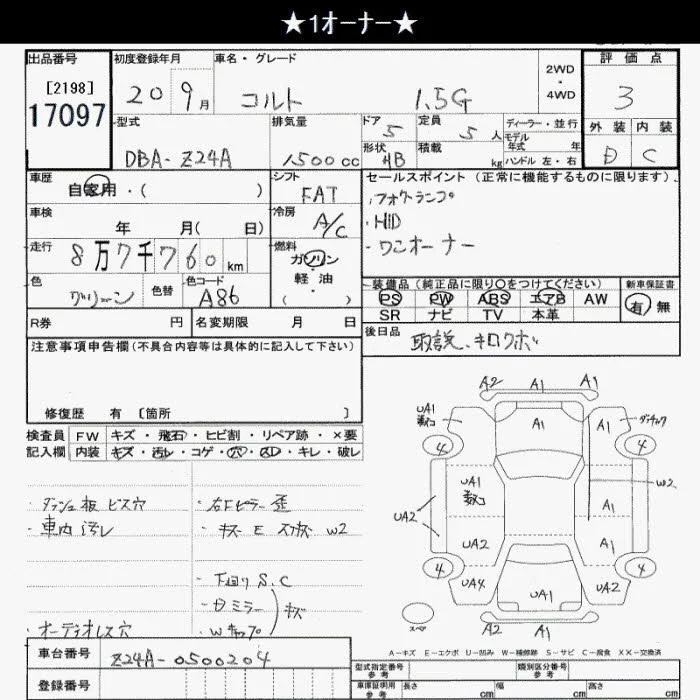 ★1オーナー★
出品番号
[2198]
17097
初度登録年月
20 9月
車名・グレード
コルト 1.5G
2WD
・
4WD
評価点
3
外装 内装
D C
型式
DBA-Z24A
排気量
1500cc
ドア
5
定員
5人
形状
HB
積載
kg
ディーラー・並行
モデル
年式 年
ハンドル 左・右
車歴
自家用・( )
シフト
FAT
車検
年 月( 日)
冷房
A/C
走行
8万7千760km
燃料
ガソリン
・
軽油
( )
色
グリーン
色替
色コード
A86
R券 円
名変期限 月 日
セールスポイント(正常に機能するものに限ります).
・フォグランプ
・HID
・ワンオーナー
装備品(純正品に限り○をつけてください)
PS PW ABS エアB AW
SR ナビ TV 本革
新車保証書
有・無
後日品
取説、キロクボ
注意事項申告欄(不具合内容等は具体的に記入して下さい)
修復歴 有 〔箇所 〕
検査員
記入欄
FW キズ・飛石・ヒビ割・リペア跡・×要
内装 キズ・汚レ・コゲ・穴・スレ・キレ・破レ
・ダッシュ板ビス穴
・車内汚レ
・オーディオレス穴
・右Fピラー歪
・キズ E W2
・下廻りS.C
・ミラー
・Wキャップ
キズ
A2 A1 A1
UA1
A1
4 4
UA1
W2
A1
UA2
UA2
A1
4 4
UA4
UA1
UA2
スペア
A2 A1
A-キズ E-エクボ U-凹み W-補修跡 S-サビ C-腐食 XX-交換済
車台番号
Z24A-0500204
登録番号
型式指定番号
参考
類別区分番号
参考
車庫証明用
参考
長さ cm
幅 cm
高さ cm